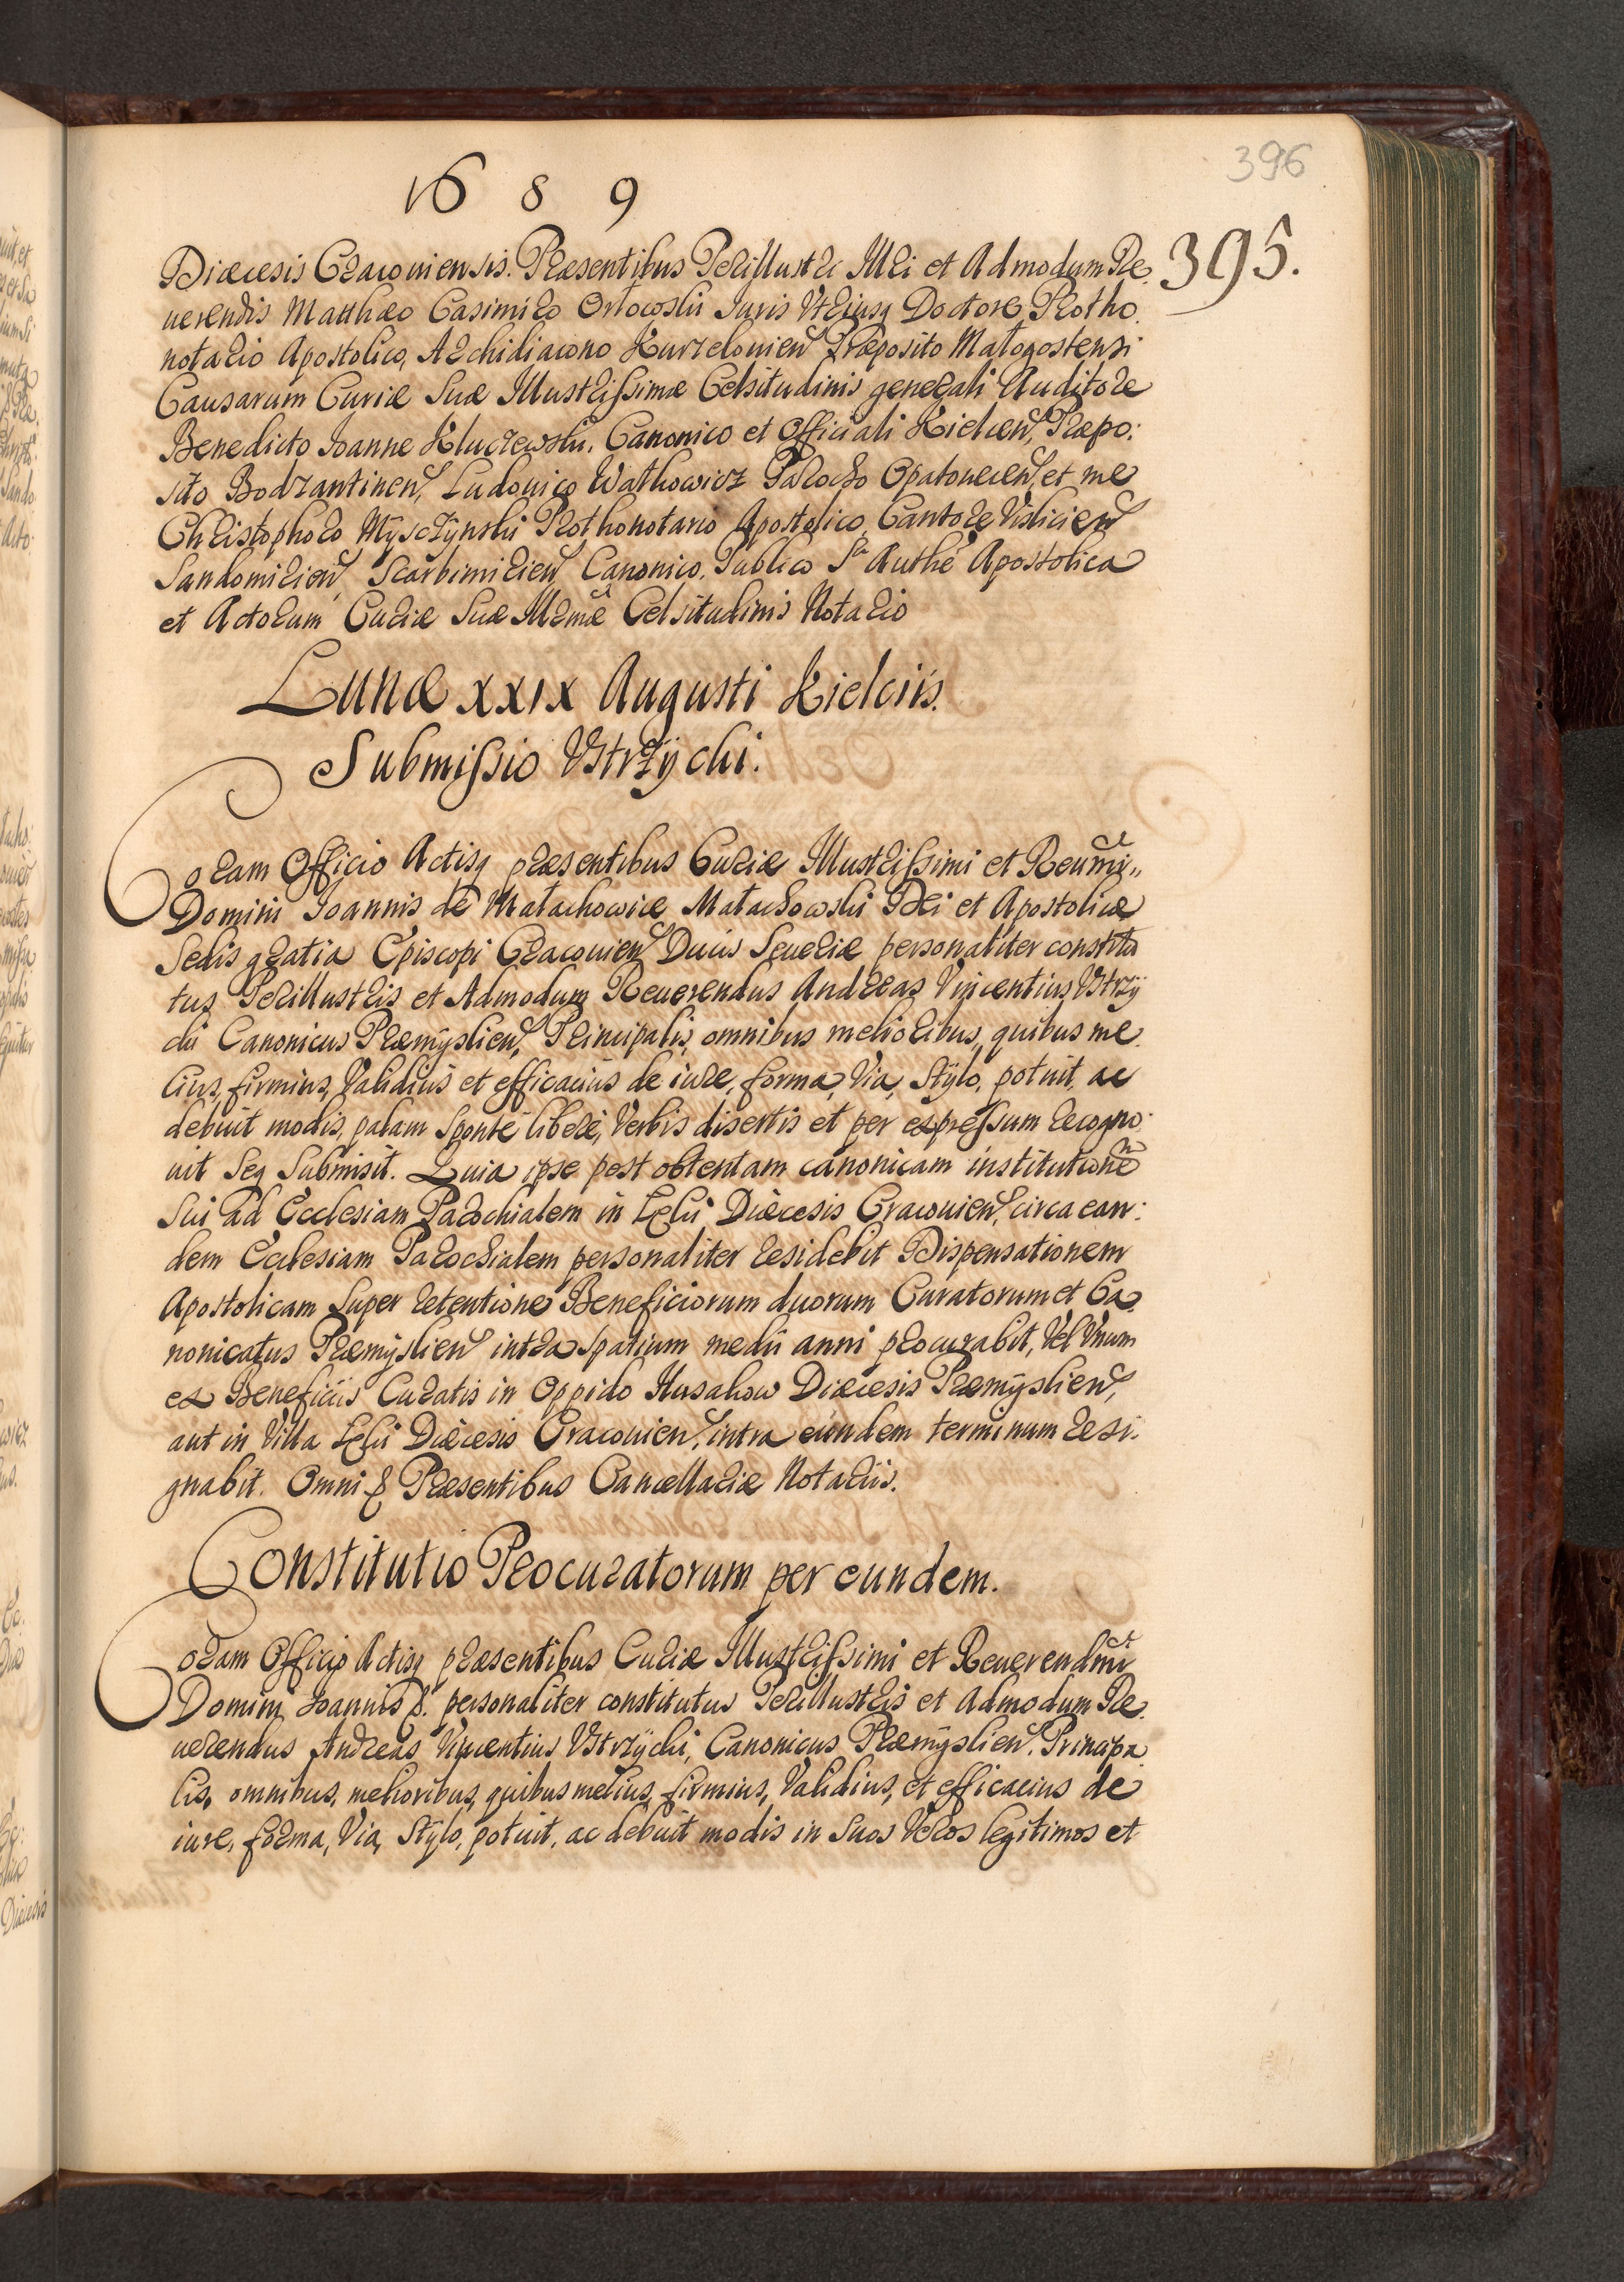 396
1689
395.
Diæcesis Cracouiensis. Præsentibus Perillustr Illri et Admodum Re
uerendis Matthæo Casimiro Orłowski Iuris Vtriusq Doctore, Protho
notario Apostolico, Archidiacono Kurzelouien Præposito Małogostensi
Causarum Curiæ Suæ Illustrissimæ Celsitudinis generali Auditore
Benedicto Ioanne Kluczewski, Canonico et Officiali Kielcen, Præpo:
sito Bodzantinen, Ludouico Wathowicz Parocho Opatouecen, et me
Christophoro Mysczynski Prothonotario Apostolico, Cantore Visliciен
Sandomirien, Scarbimirien Canonico, Publico Sa Authe Apostolica
et Actorum Curiæ Suæ Illmæ Celsitudinis Notario
Lunæ XXIX Augusti Kielciis.
Submissio Vstrzycki.
Coram Officio Actisq præsentibus Curiæ Illustrissimi et Reumi
Domini Ioannis de Małachowice Małachowski Dei et Apostolicæ
Sedis gratia Episcopi Cracouien Ducis Seueriæ personaliter constitu
tus Perillustris et Admodum Reuerendus Andreas Vincentius Vstrzy
cki Canonicus Præmyslien, Principalis, omnibus melioribus, quibus me
lius, firmius, Validius et efficacius de iure, forma, Via, Stylo, potuit, ac
debuit modis, palam Sponte libere, Verbis disertis et per expressum recogno:
uit Seq Submisit. Quia ipse post obtentam canonicam institutione
Sui ad Ecclesiam Parochialem in Łęki Diæcesis Cracouien, circa ean:
dem Ecclesiam Parochialem personaliter residebit Dispensationem
Apostolicam Super retentione Beneficiorum duorum Curatorum et Ca
nonicatus Præmyslien intra Spatium medii anni procurabit, Vel Vnum
ex Beneficiis Curatis in Oppido Husakow Diæcesis Præmyslien,
aut in Villa Łęki Diæcesis Cracouien, intra eundem terminum resi:
gnabit. Omni & Præsentibus Cancellariæ Notariis.
Constitutio Procuratorum per eundem.
Coram Officio Actisq præsentibus Curiæ Illustrissimi et Reuerendmi
Domini Ioannis &. personaliter constitutus Perillustris et Admodum Re
uerendus Andreas Vincentius Vstrzycki, Canonicus Præmyslien. Principa
lis, omnibus, melioribus, quibus melius, firmius, Validius, et efficacius de
iure, forma, Via, Stylo, potuit, ac debuit modis in Suos Veros legitimos et